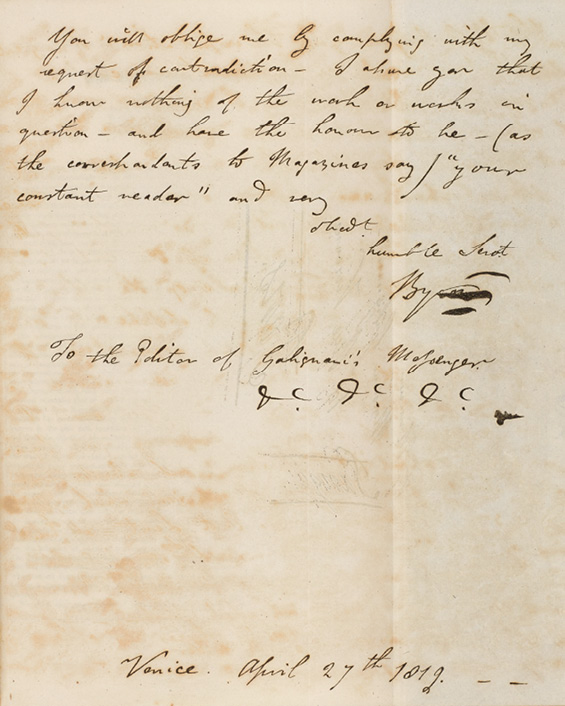 You will oblige me by complying with my
request of contradiction – I assure you that
I know nothing of the work or works in
question – and have the honour to be – (as
the correspondants to Magazines say) "your
constant reader" and very
obedt
humble Servt
Byron
To the Editor of Galignani's Messenger.
&c. &c. &c.
Venice. April 27th 1819. – –